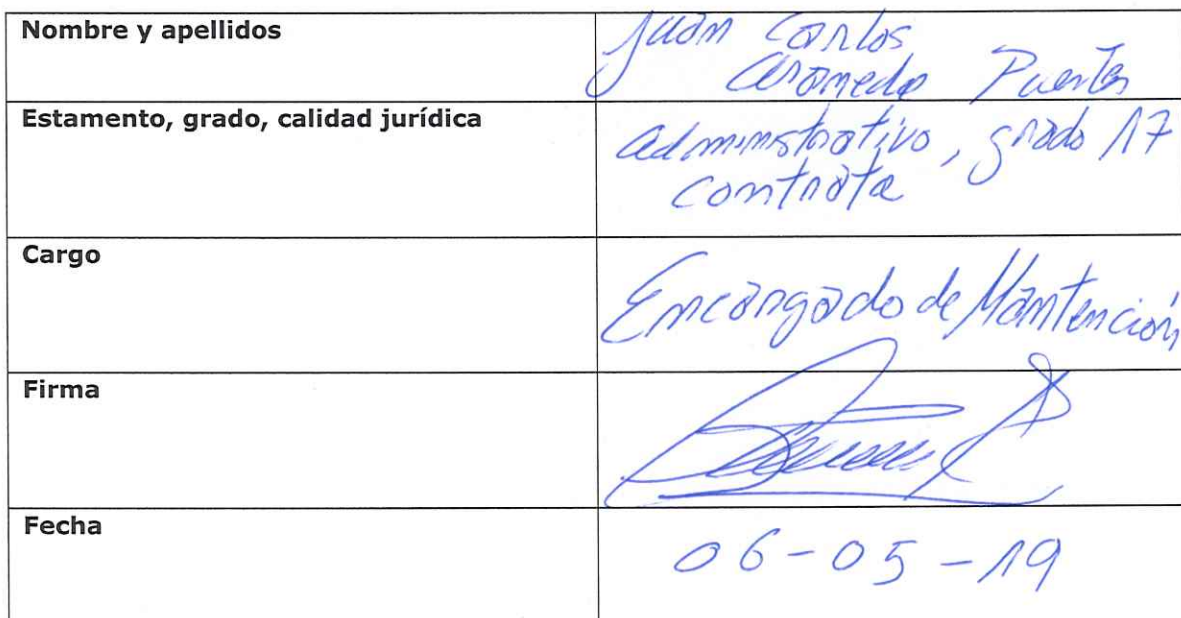 Nombre y apellidos
Juan Carlos
Araneda Puentes
Estamento, grado, calidad jurídica
administrativo, grado 17
contrata
Cargo
Encargado de Mantención
Firma
Fecha
06-05-19